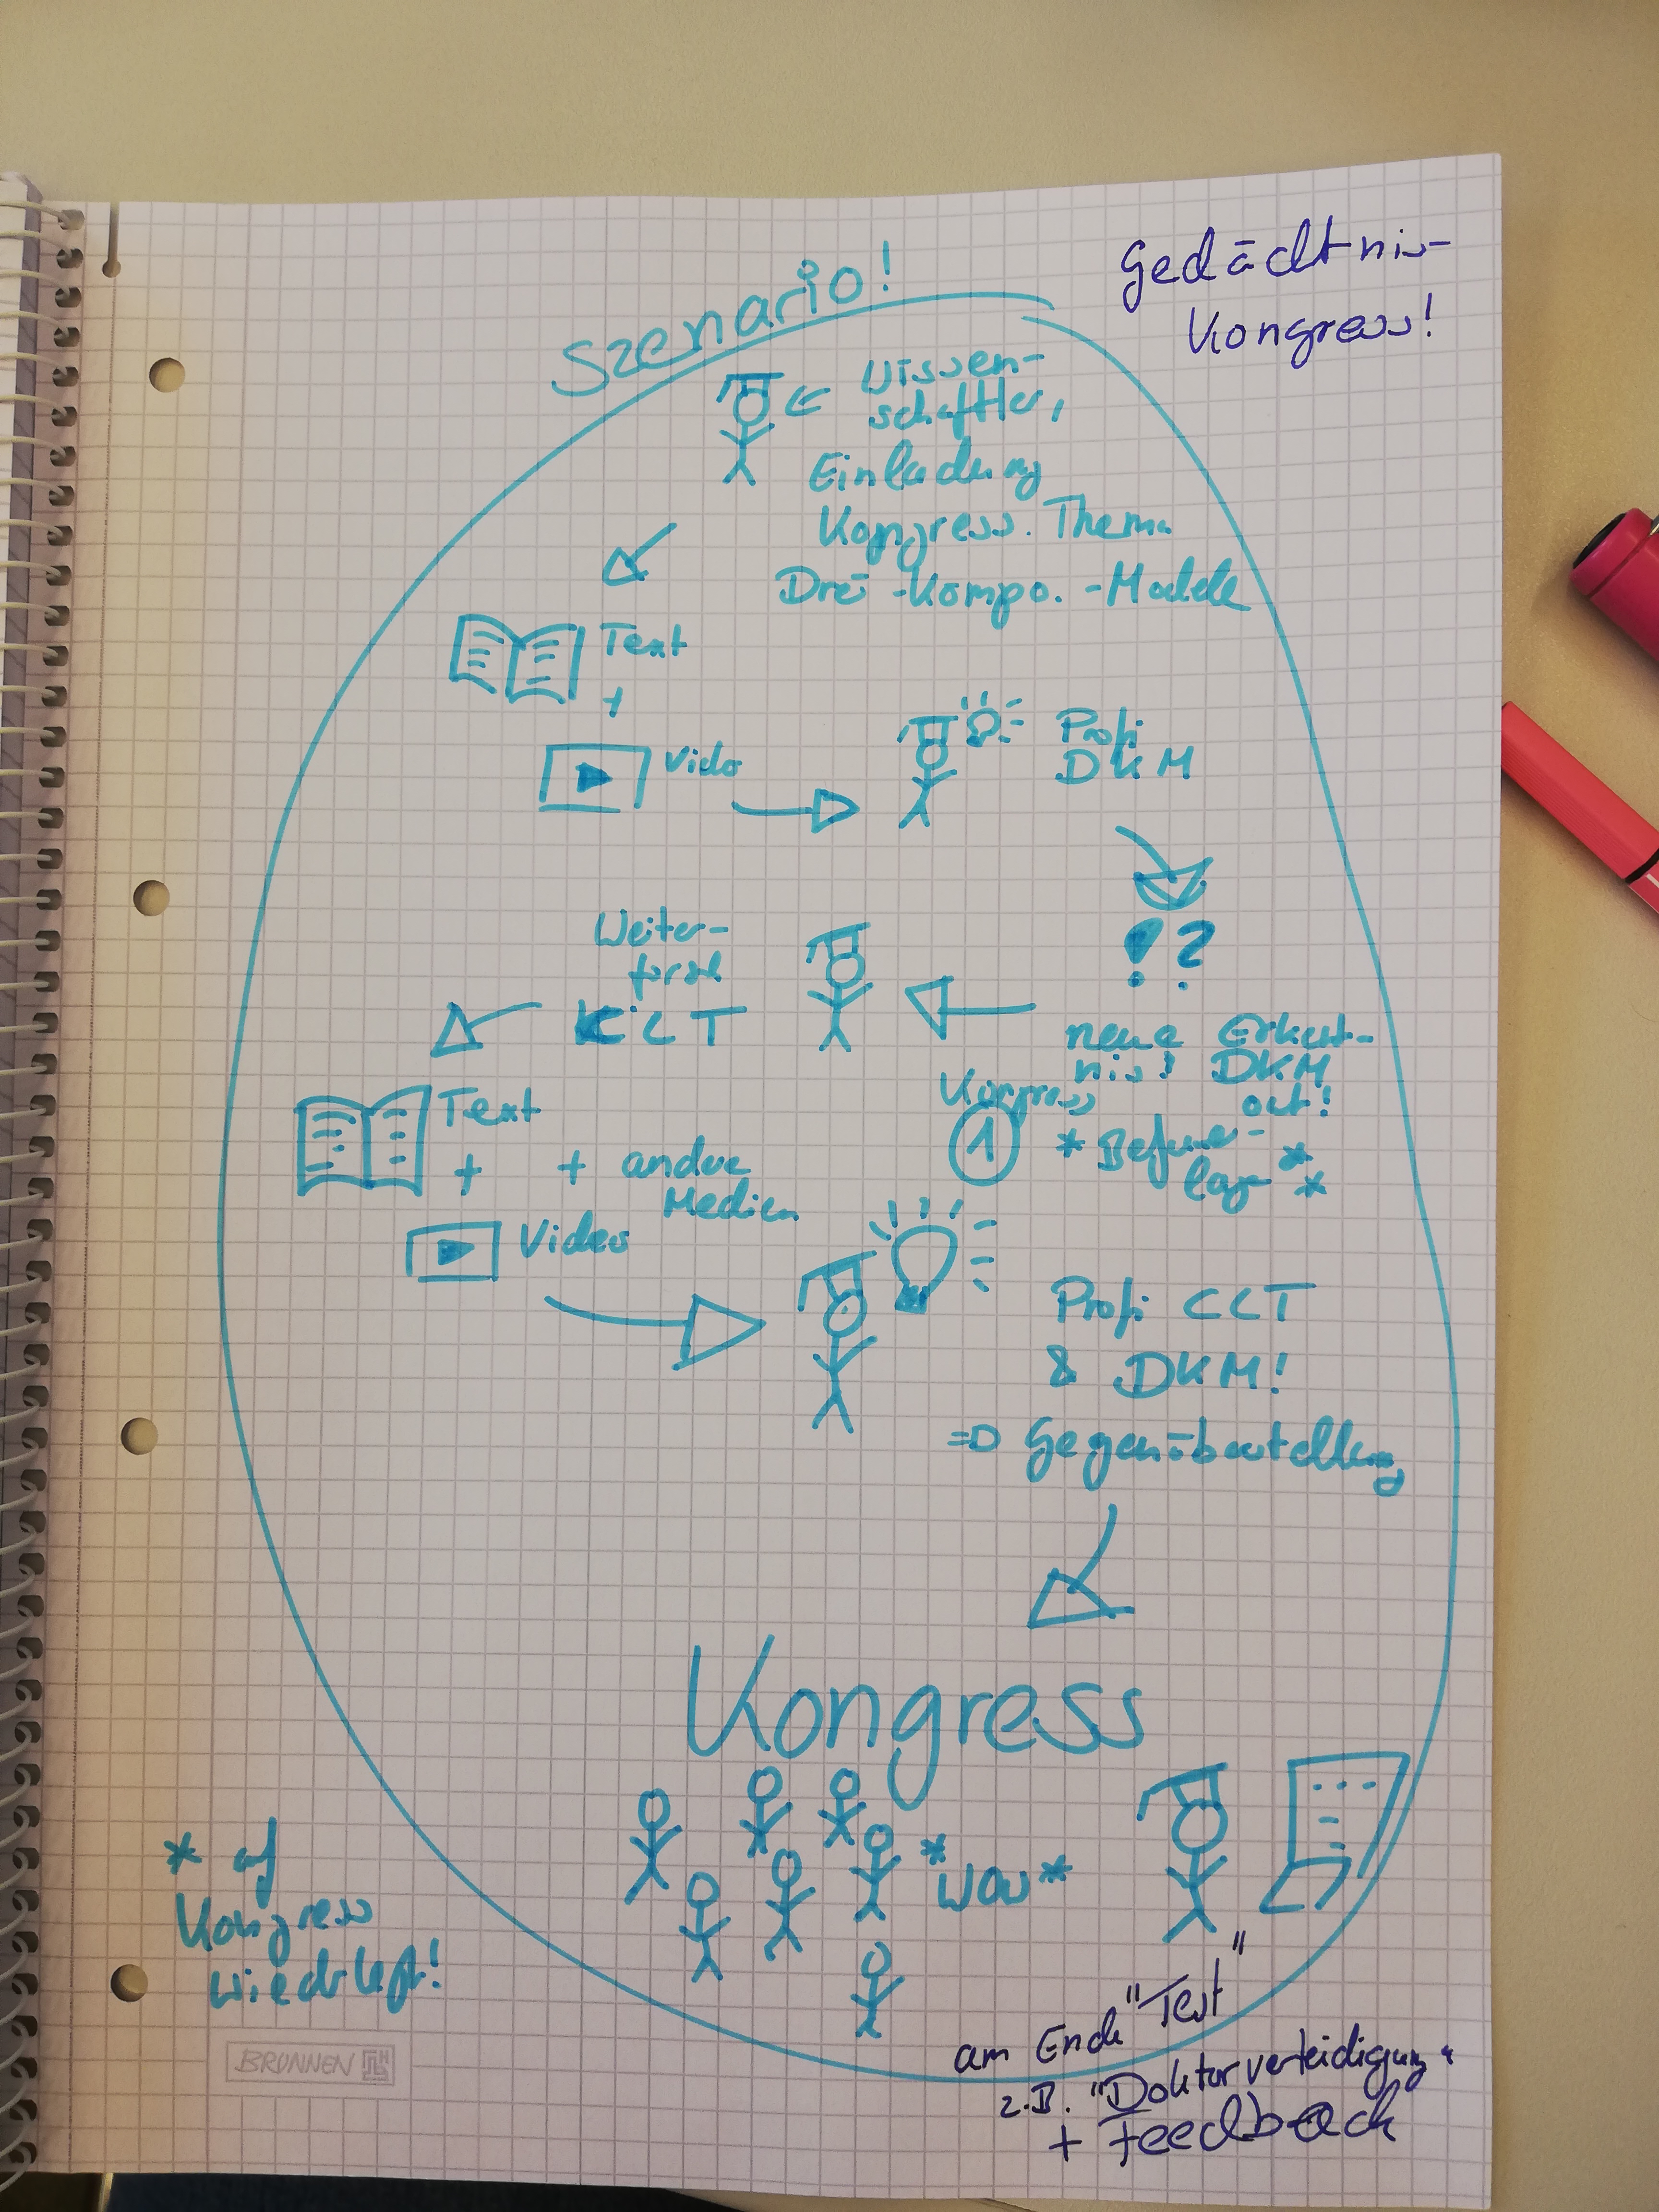 Gedächtnis-
Kongress!
Szenario!
Wissen-
schaftler,
Einladung
Kongress. Thema
Drei-Kompo.-Modele
Text
+
Video
Profi
DKM
!?
neue Erkennt-
nis! DKM
out!
Kongress
1
* Befunde-
lage *
*
Weiter-
forsch
CLT
Text
+ + andere
Medien
Video
Profi CLT
& DKM!
=> Gegenüberstellung
Kongress
*WOW*
* auf
Kongress
wiederlegt!
am Ende "Test"
z.B. "Doktorverteidigung"
+ Feedback
BRUNNEN